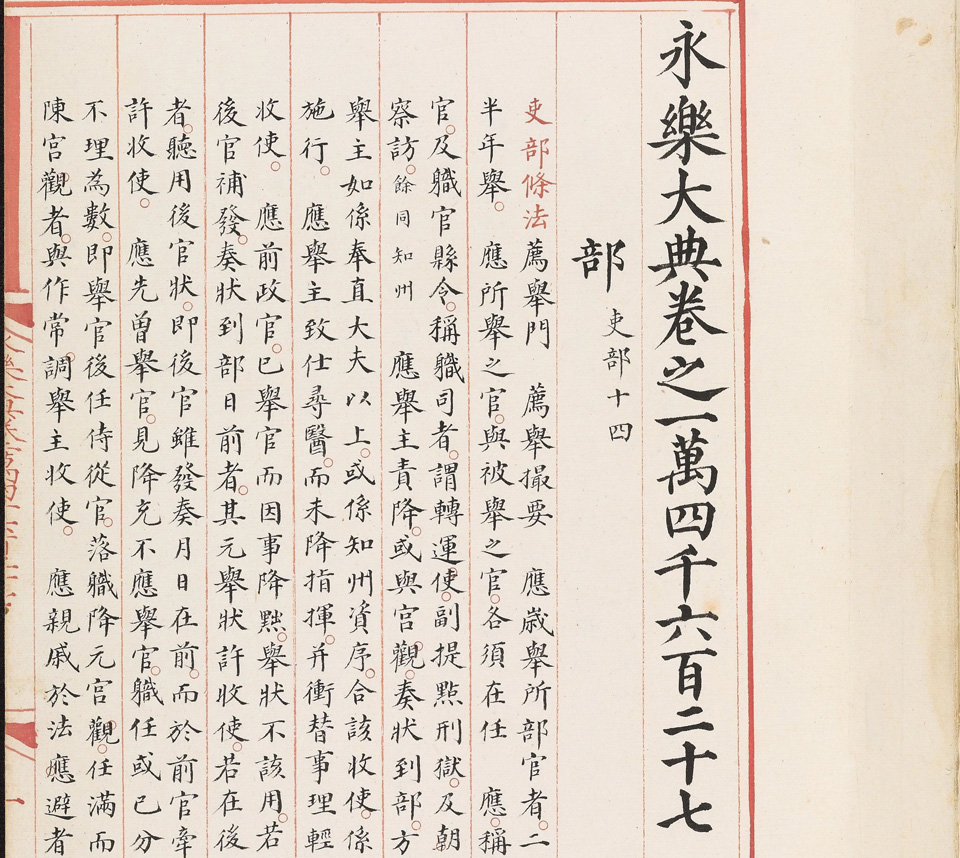 永樂大典卷之一萬四千六百二十七
部 吏部十四
吏部條法 薦舉門 薦舉撮要 應歲舉所部官者二
半年舉 應所舉之官與被舉之官各須在任 應稱
官及職官縣令稱職司者謂轉運使副提點刑獄及朝
察訪餘同知州 應舉主責降或與宮觀奏狀到部方
舉主如係奉直大夫以上或係知州資序合該收使係
施行 應舉主致仕尋醫而未降指揮并衝替事理輕
收使 應前政官已舉官而因事降黜舉狀不該用若
後官補發奏狀到部日前者其元舉狀許收使若在後
者聽用後官狀即後官雖發奏月日在前而於前官牽
許收使 應先曾舉官見降充不應舉官職任或已分
不理為數即舉官後任侍從官落職降元宮觀任滿而
陳宮觀者與作常調舉主收使 應親戚於法應避者